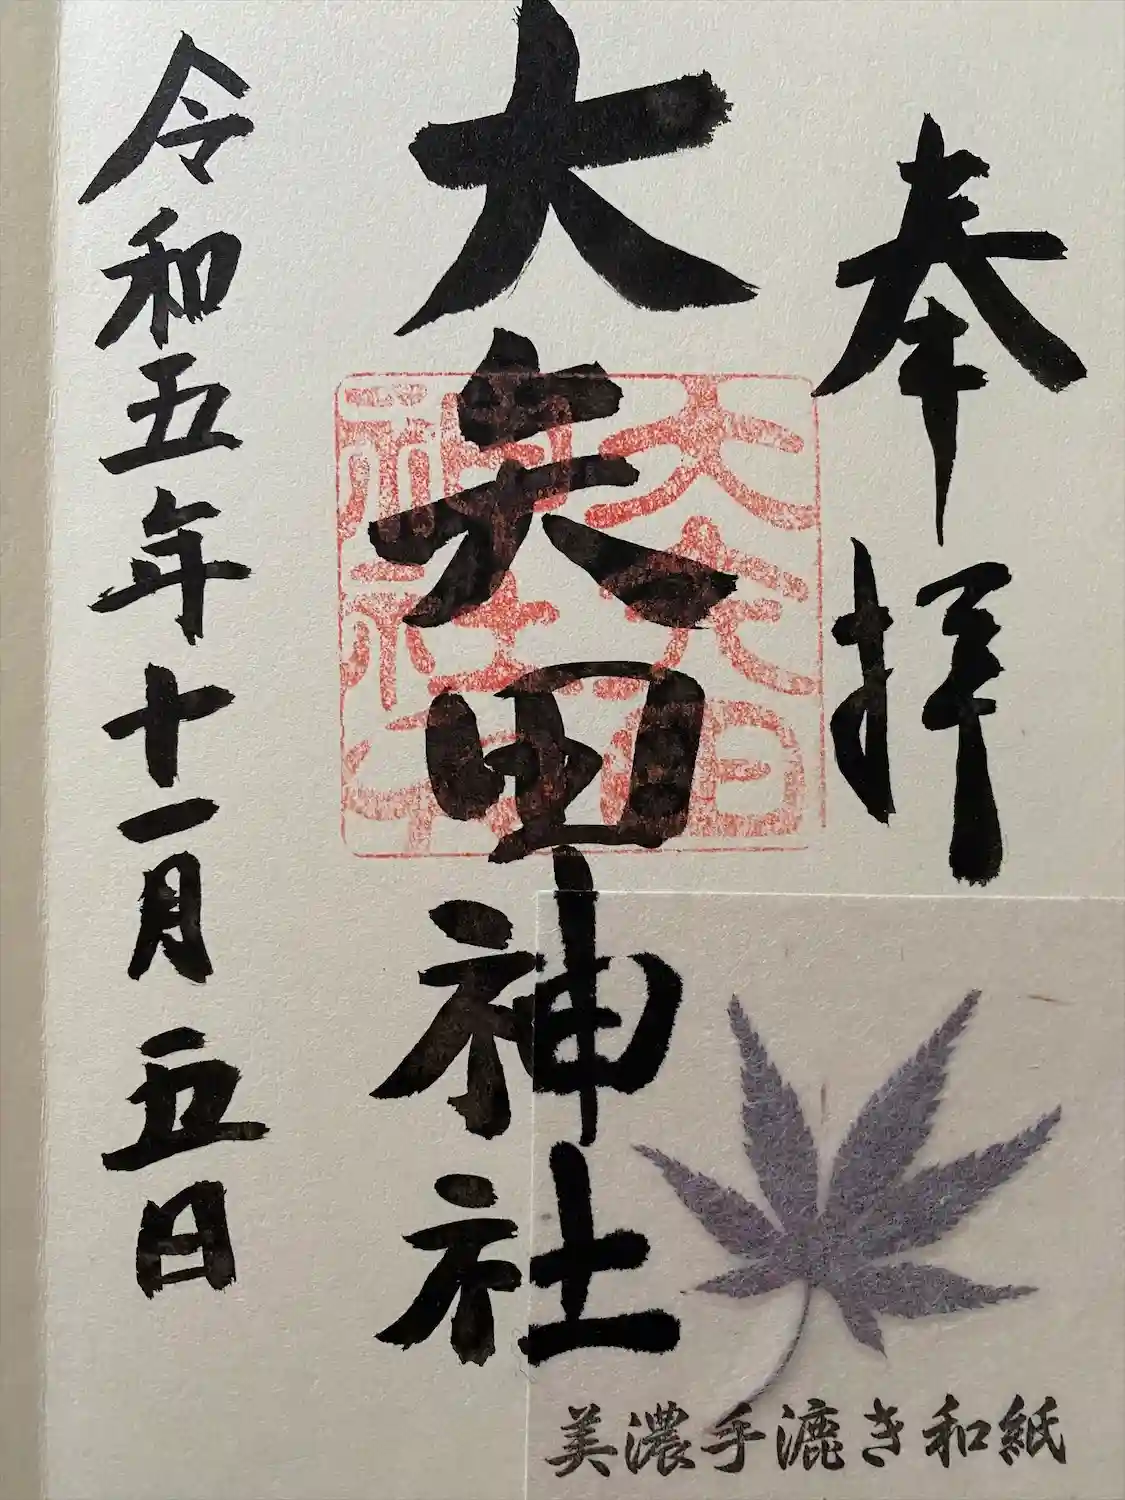 奉拝
大矢田神社
大矢田
神社印
令和五年十一月五日
美濃手漉き和紙